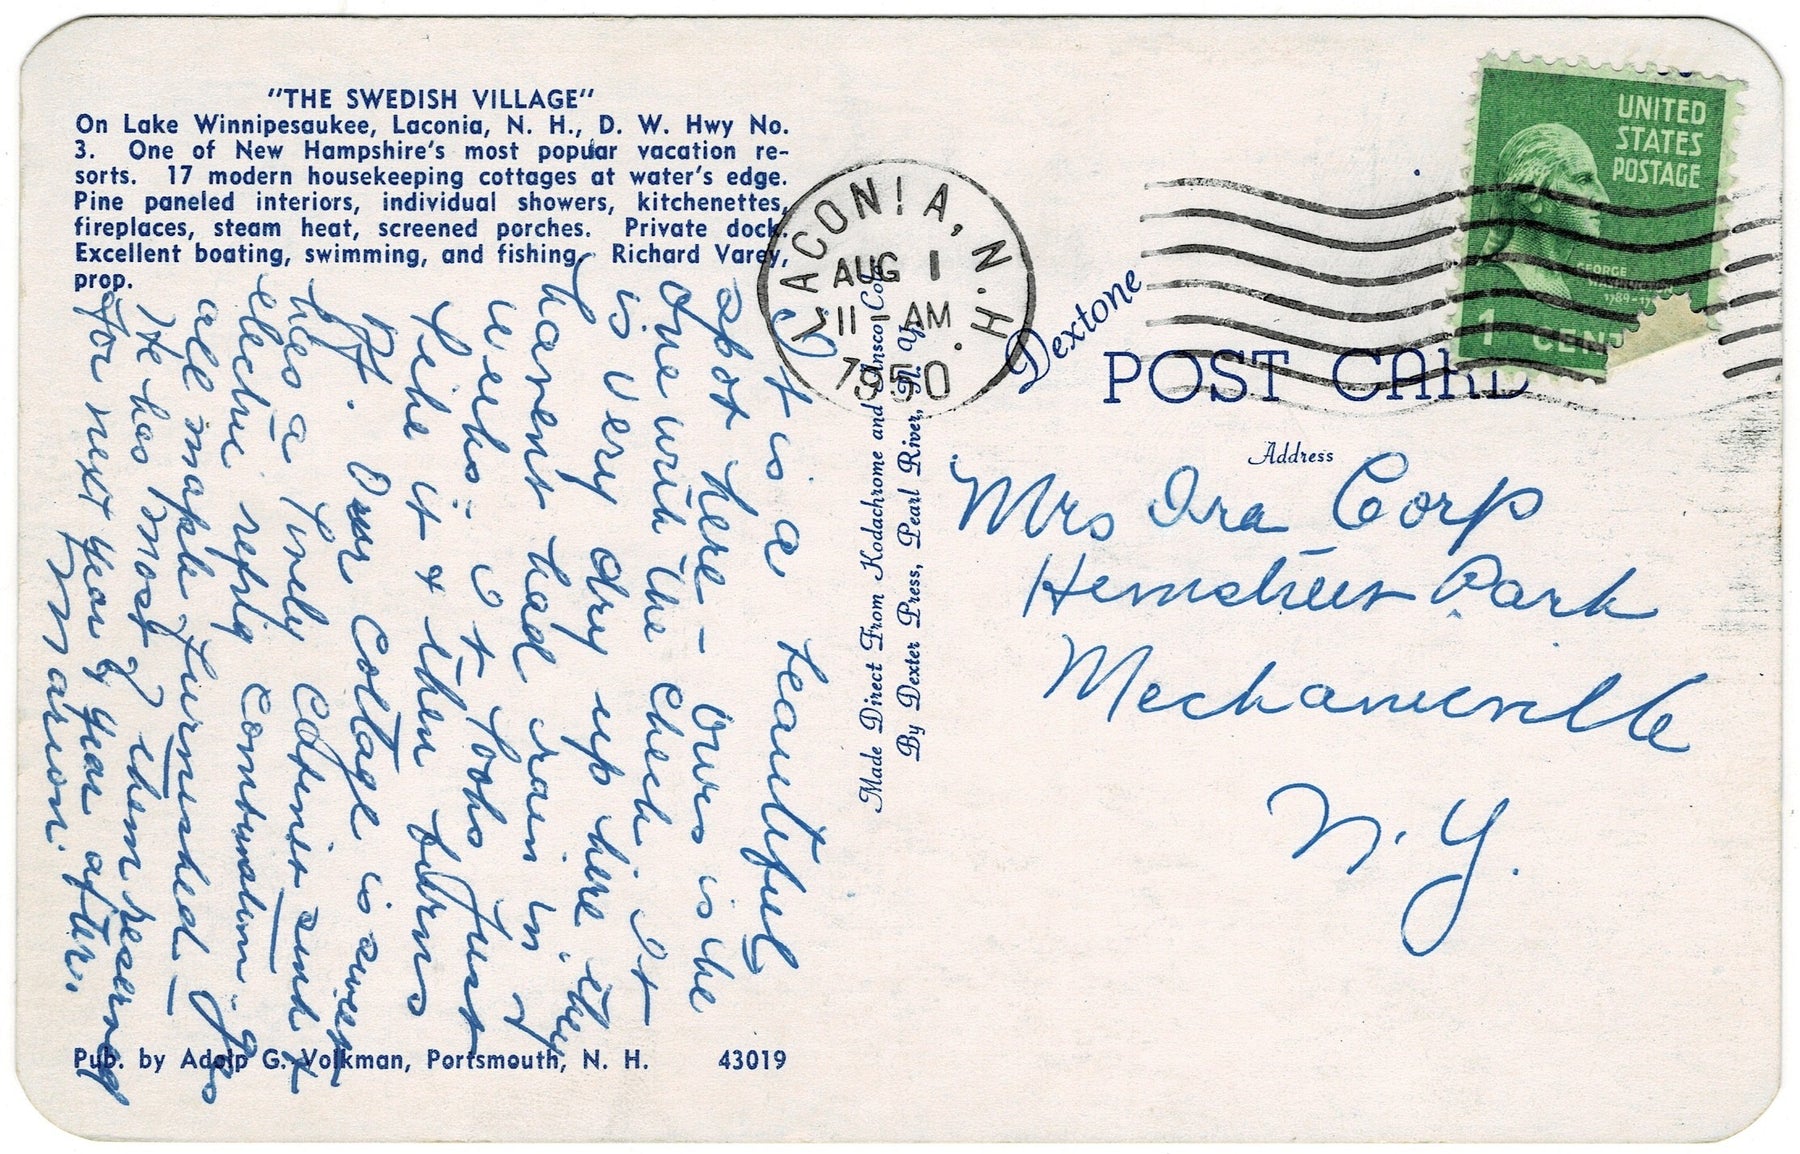 "THE SWEDISH VILLAGE"
On Lake Winnipesaukee, Laconia, N. H., D. W. Hwy No.
3. One of New Hampshire's most popular vacation re-
sorts. 17 modern housekeeping cottages at water's edge.
Pine paneled interiors, individual showers, kitchenettes,
fireplaces, steam heat, screened porches. Private dock.
Excellent boating, swimming, and fishing. Richard Varey,
prop.
It is a beautiful
spot here - ours is the
one with the check. It
is very dry up here. they
havent had rain in 7
weeks. It looks just
like it & then turns
off. Our cottage is sweet
has a lovely
electric refrig combination.
all maple furnished - Jos
He has most of them reserved
for next year & year after.
Marion.
Pub. by Adolp G. Volkman, Portsmouth, N. H.
43019
Made Direct From Kodachrome and Ansco Color
By Dexter Press, Pearl River, N. Y.
LACONIA, N.H.
AUG 1
11 - AM
1950
Dextone
POST CARD
UNITED
STATES
POSTAGE
GEORGE
WASHINGTON
1789-17
1 CENT
Address
Mrs Ira Corp
Hemstreet Park
Mechanicville
N.Y.